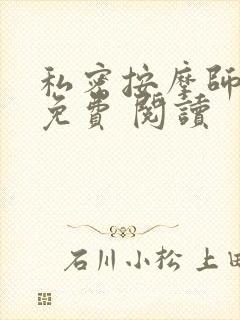 私密按摩師
免費 閱讀
石川小松 上田